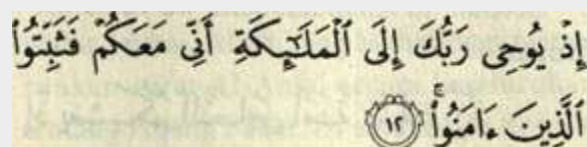 إِذْ يُوحِى رَبُّكَ إِلَى ٱلْمَلَـٰٓئِكَةِ أَنِّى مَعَكُمْ فَثَبِّتُوا۟
ٱلَّذِينَ ءَامَنُوا۟ ۚ ١٢